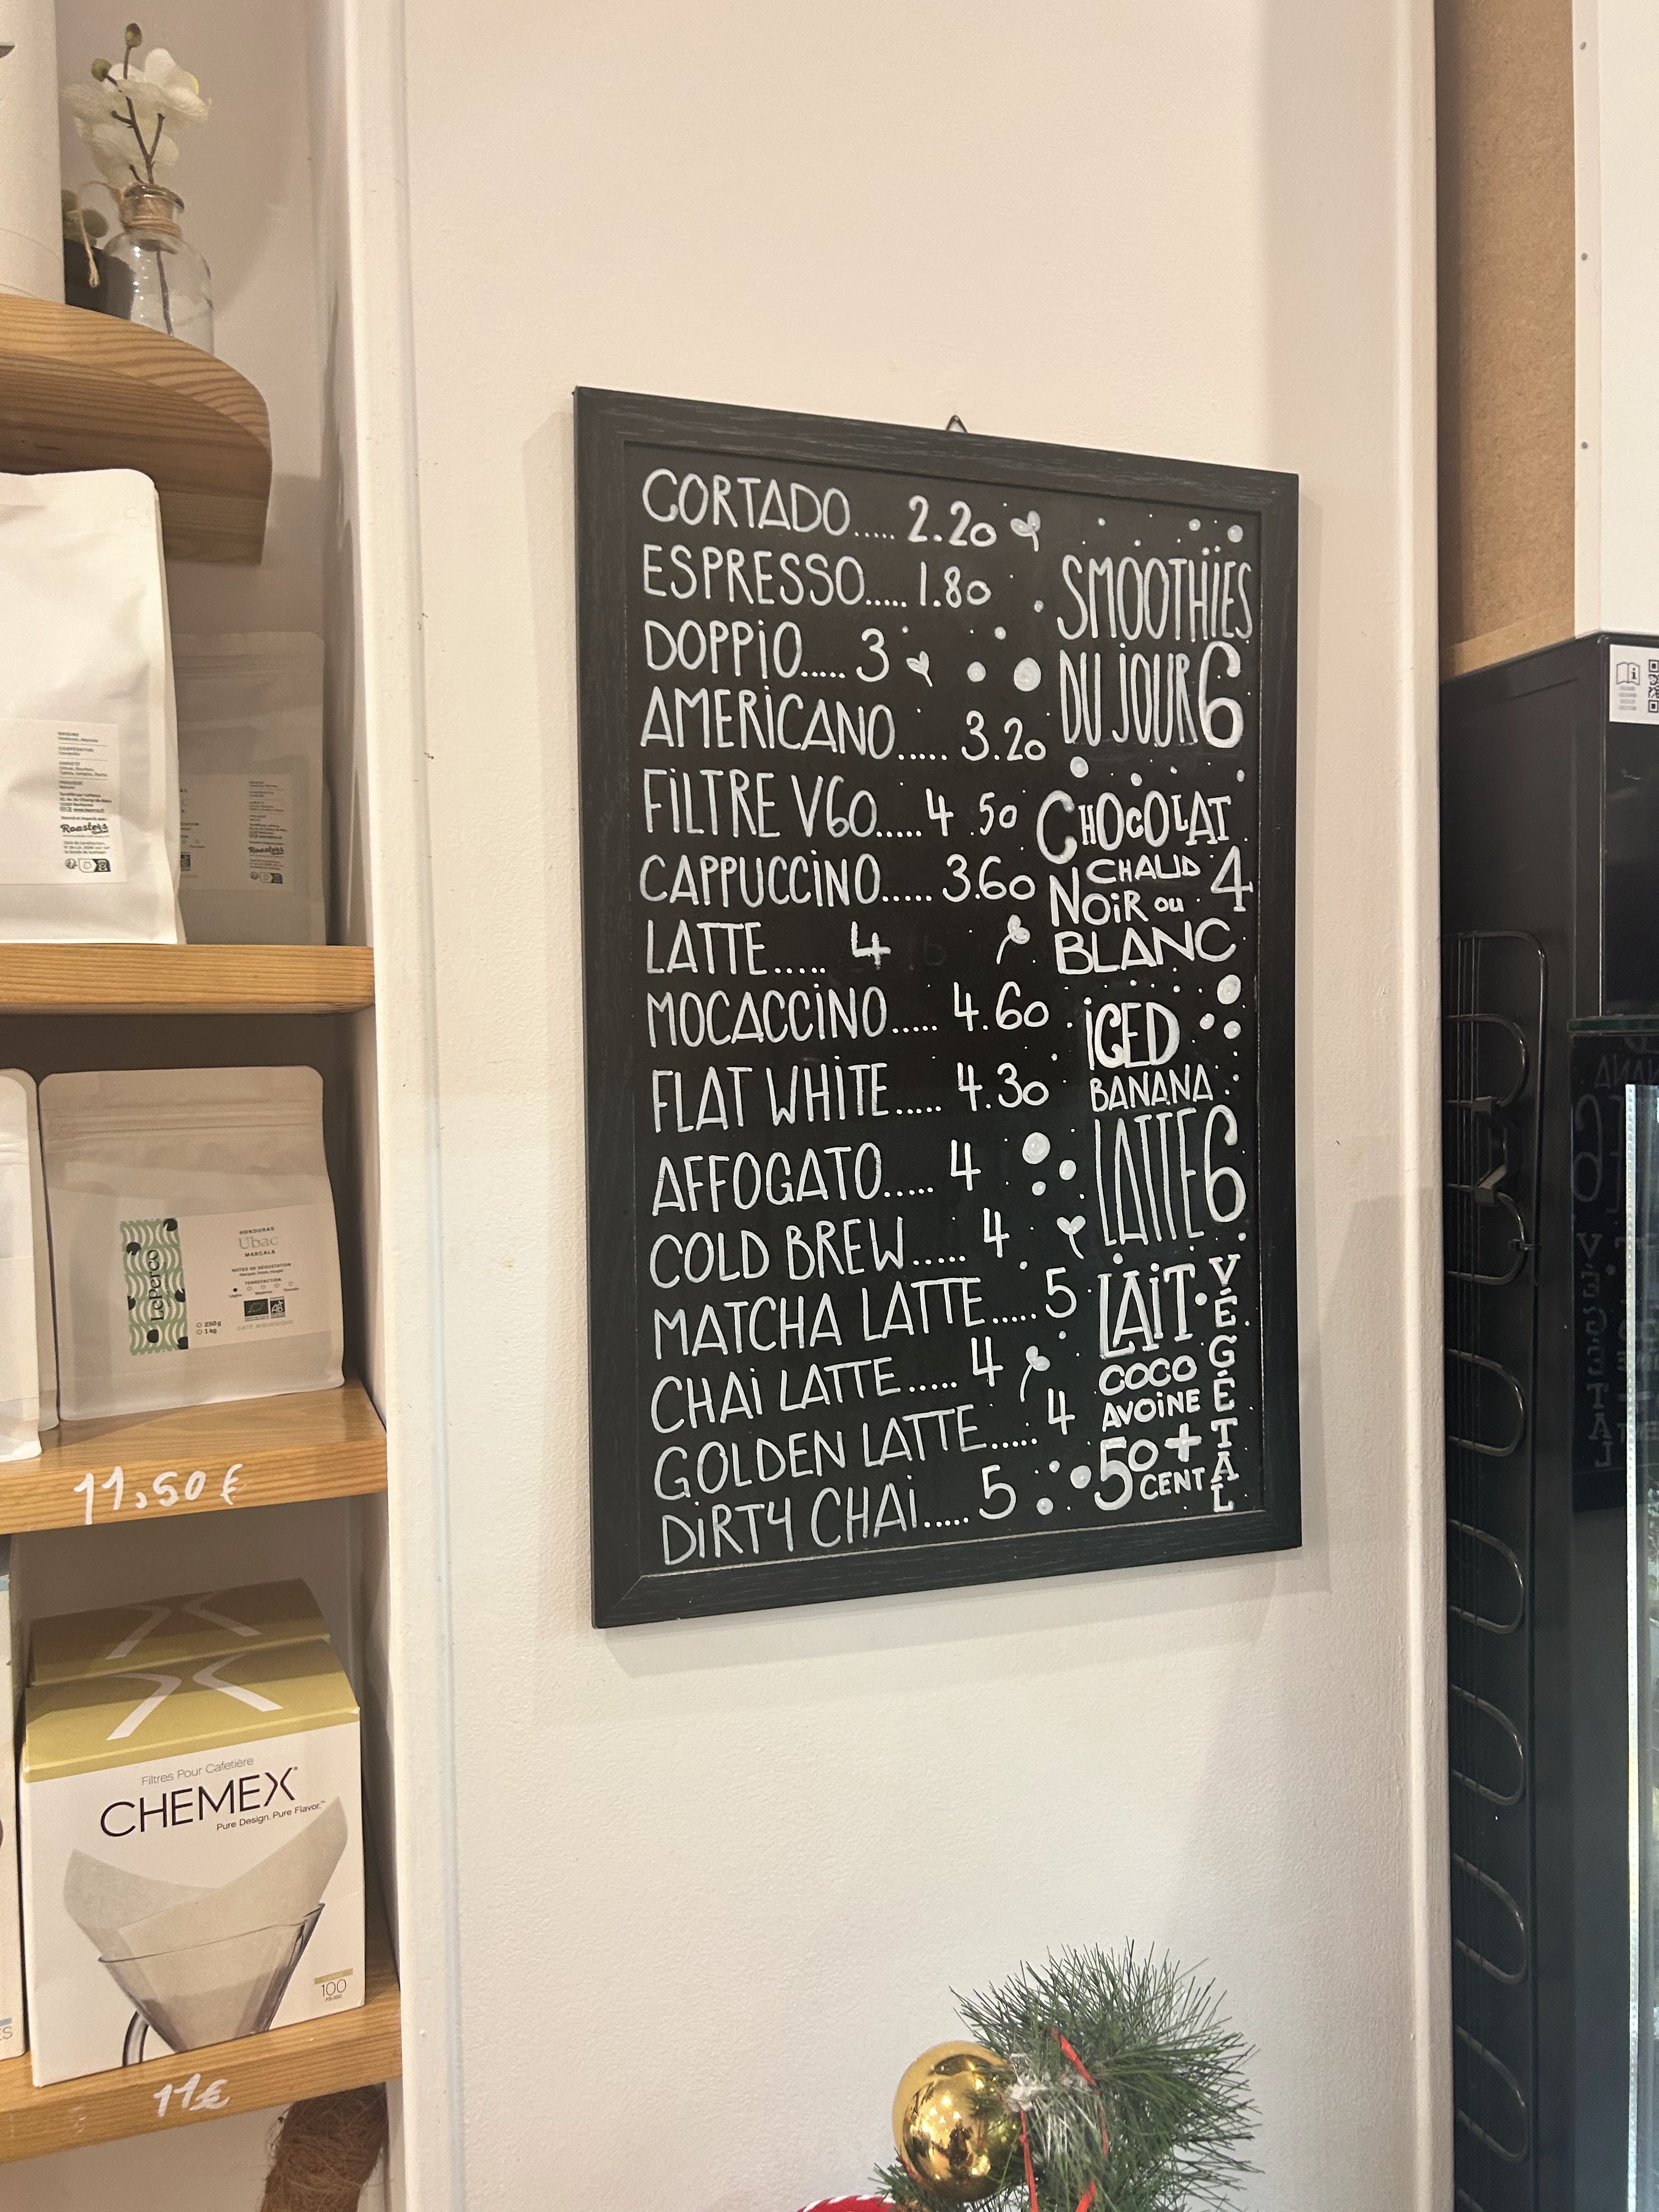 CORTADO..... 2.20
ESPRESSO..... 1.80
DOPPiO..... 3
AMERiCANO..... 3.20
FiLTRE V60..... 4.50
CAPPUCCiNO..... 3.60
LATTE..... 4
MOCACCiNO..... 4.60
FLAT WHiTE..... 4.30
AFFOGATO..... 4
COLD BREW..... 4
MATCHA LATTE..... 5
CHAi LATTE..... 4
GOLDEN LATTE..... 4
DiRTY CHAi..... 5
SMOOTHiES
DU JOUR 6
CHOCOLAT
CHAUD 4
NOiR ou
BLANC
iCED
BANANA
LATTE 6
LAiT
VÉGÉTAL
COCO
AVOiNE
+
50 CENT
Roasters
Roasters
LePerco
HONDURAS
Ubac
MARCALA
NOTES DE DÉGUSTATION
TORRÉFACTION
250g
1 kg
11,50 €
Filtres Pour Cafetière
CHEMEX
Pure Design. Pure Flavor.™
100
11€